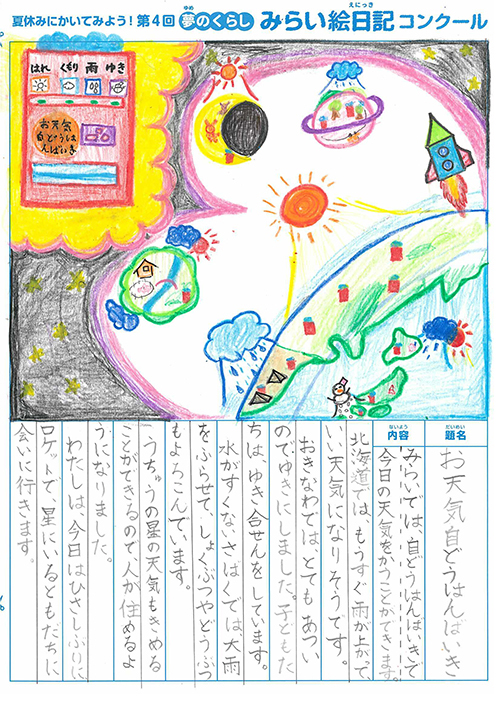 夏休みにかいてみよう!第4回 夢のくらし みらい絵日記コンクール
ゆめ
えにっき
はれ くもり 雨 ゆき
お天気
自どうはん
ばいき
題名
だいめい
お天気自どうはんばいき
内容
ないよう
みらいでは、自どうはんばいきで
今日の天気をかうことができます。
北海道では、もうすぐ雨が上がって、
いい天気になりそうです。
おきなわでは、とてもあつい
のでゆきにしました。子どもた
ちは、ゆき合せんをしています。
水がすくないさばくでは、大雨
をふらせて、しょくぶつやどうぶつ
もよろこんでいます。
うちゅうの星の天気もきめる
ことができるので人が住めるよ
うになりました。
わたしは、今日はひさしぶりに
ロケットで、星にいるともだちに
会いに行きます。